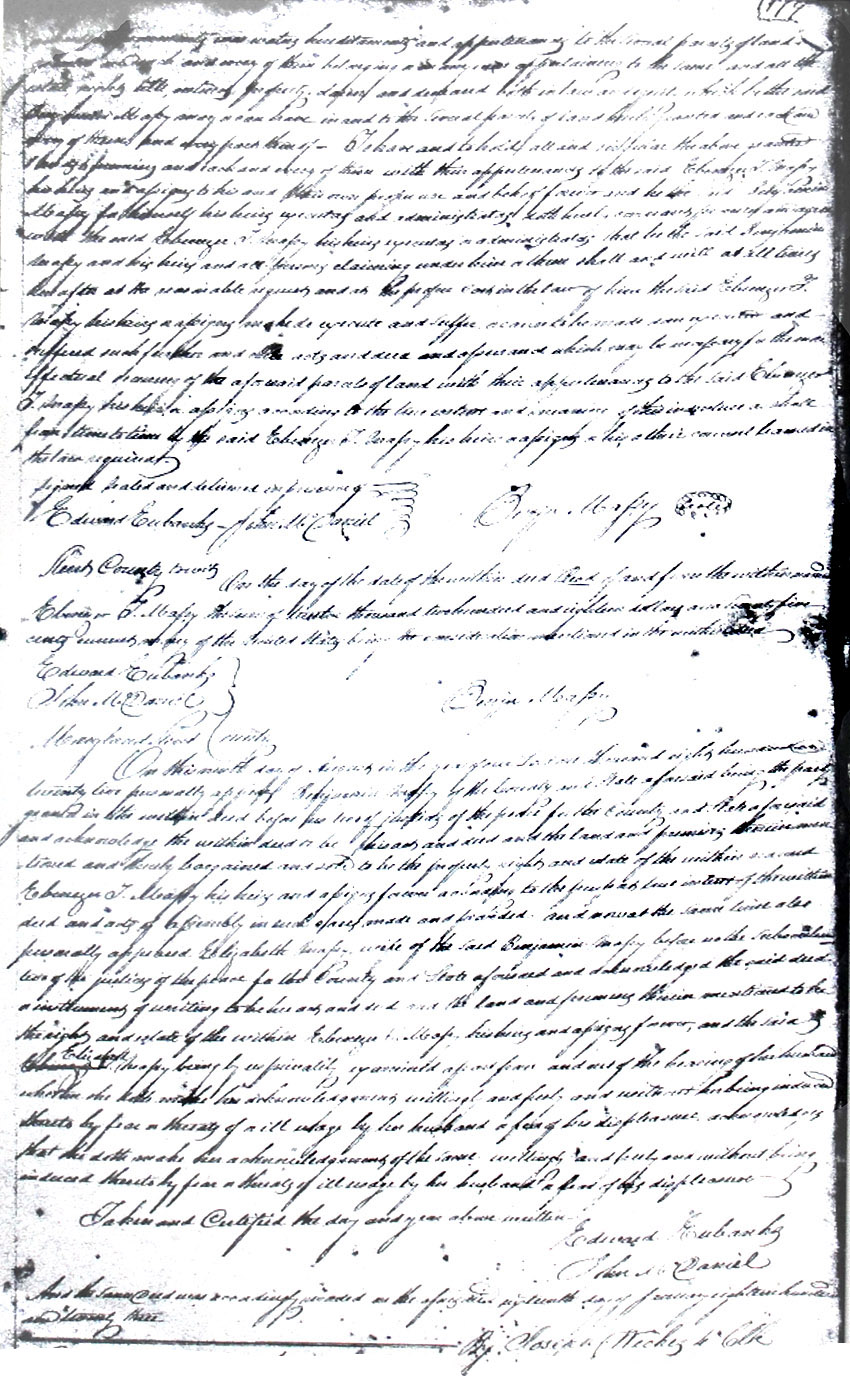 177
and appurtenances to the several parcels of land
and every of them belonging or in any wise appertaining to the same and all the
estate right title interest property claim and demand both in law or equity which he the said
Benjamin Massy may or can have in and to the several parcels of land
every of them and every part thereof - To have and to hold all and singular the above granted
premises and each and every of them with their appurtenances to the said Ebenezer T. Massy
his heirs and assigns to his and their own proper use and behoof forever and he the said Benjamin
Massy for themself his heirs executors and administrators doth hereby covenant promise and agree
with the said Ebenezer T. Massy his heirs executors or administrators that he the said Benjamin
Massy and his heirs and all persons claiming under him or them shall and will at all times
hereafter at the reasonable request and at the proper cost in the law of him the said Ebenezer T.
Massy his heirs or assigns make do execute and suffer or cause to be made done executed and
suffered such further and other acts and deed and assurance which may be necessary for the more
effectual securing of the aforesaid parcels of land with their appurtenances to the said Ebenezer
T. Massy his heirs or assigns according to the true intent and meaning of this indenture as shall
from time to time by the said Ebenezer T. Massy his heirs or assigns or his or their counsel learned in
the law required.
Signed sealed and delivered in presence of
Edward Eubanks - John McDaniel Benja Massy Seal
Kent County towit
On the day of the date of the within deed Recd of and from the within named
Ebenezer T. Massy the sum of thousand two hundred and eighteen dollars and twenty five
cents current money of the United States being the consideration mentioned in the within deed
Edward Eubanks
John McDaniel Benja Massy
Maryland Kent County
On this ninth day of in the year of our Lord one thousand eight hundred and
twenty two personally appears Benjamin Massy of the County and State aforesaid being the party
grantor in the within deed before us two of justices of the peace for the County and State aforesaid
and acknowledge the within deed to be his act and deed and the land and premises therein men
tioned and thereby bargained and sold to be the property right and estate of the within named
Ebenezer T. Massy his heirs and assigns forever according to the purport true intent of the within
deed and acts of assembly in such case made and provided. and now at the same time also
personally appeared Elizabeth Massy wife of the said Benjamin Massy before us the subscribers
two of the justices of the peace for the County and State aforesaid and acknowledged the said deed
or instrument of writing to be her act and deed and the land and premises therein mentioned to be
the right and estate of the within Ebenezer T. Massy his heirs and assigns forever, and the said
Elizabeth Massy being by us privately examined apart from and out of the hearing of her husband
whether she doth make her acknowledgement willingly and freely and without her being induced
thereto by fear or threats of or ill usage by her husband or fear of his displeasure acknowledges
that she doth make her acknowledgement of the same willingly and freely and without being
induced thereto by fear or threats of ill usage by her husband or fear of his displeasure
Taken and Certified the day and year above written
Edward Eubanks
John McDaniel
And the same deed was accordingly recorded on the day of January eighteen hundred
and twenty three
By Joseph Wickes 4th Clk